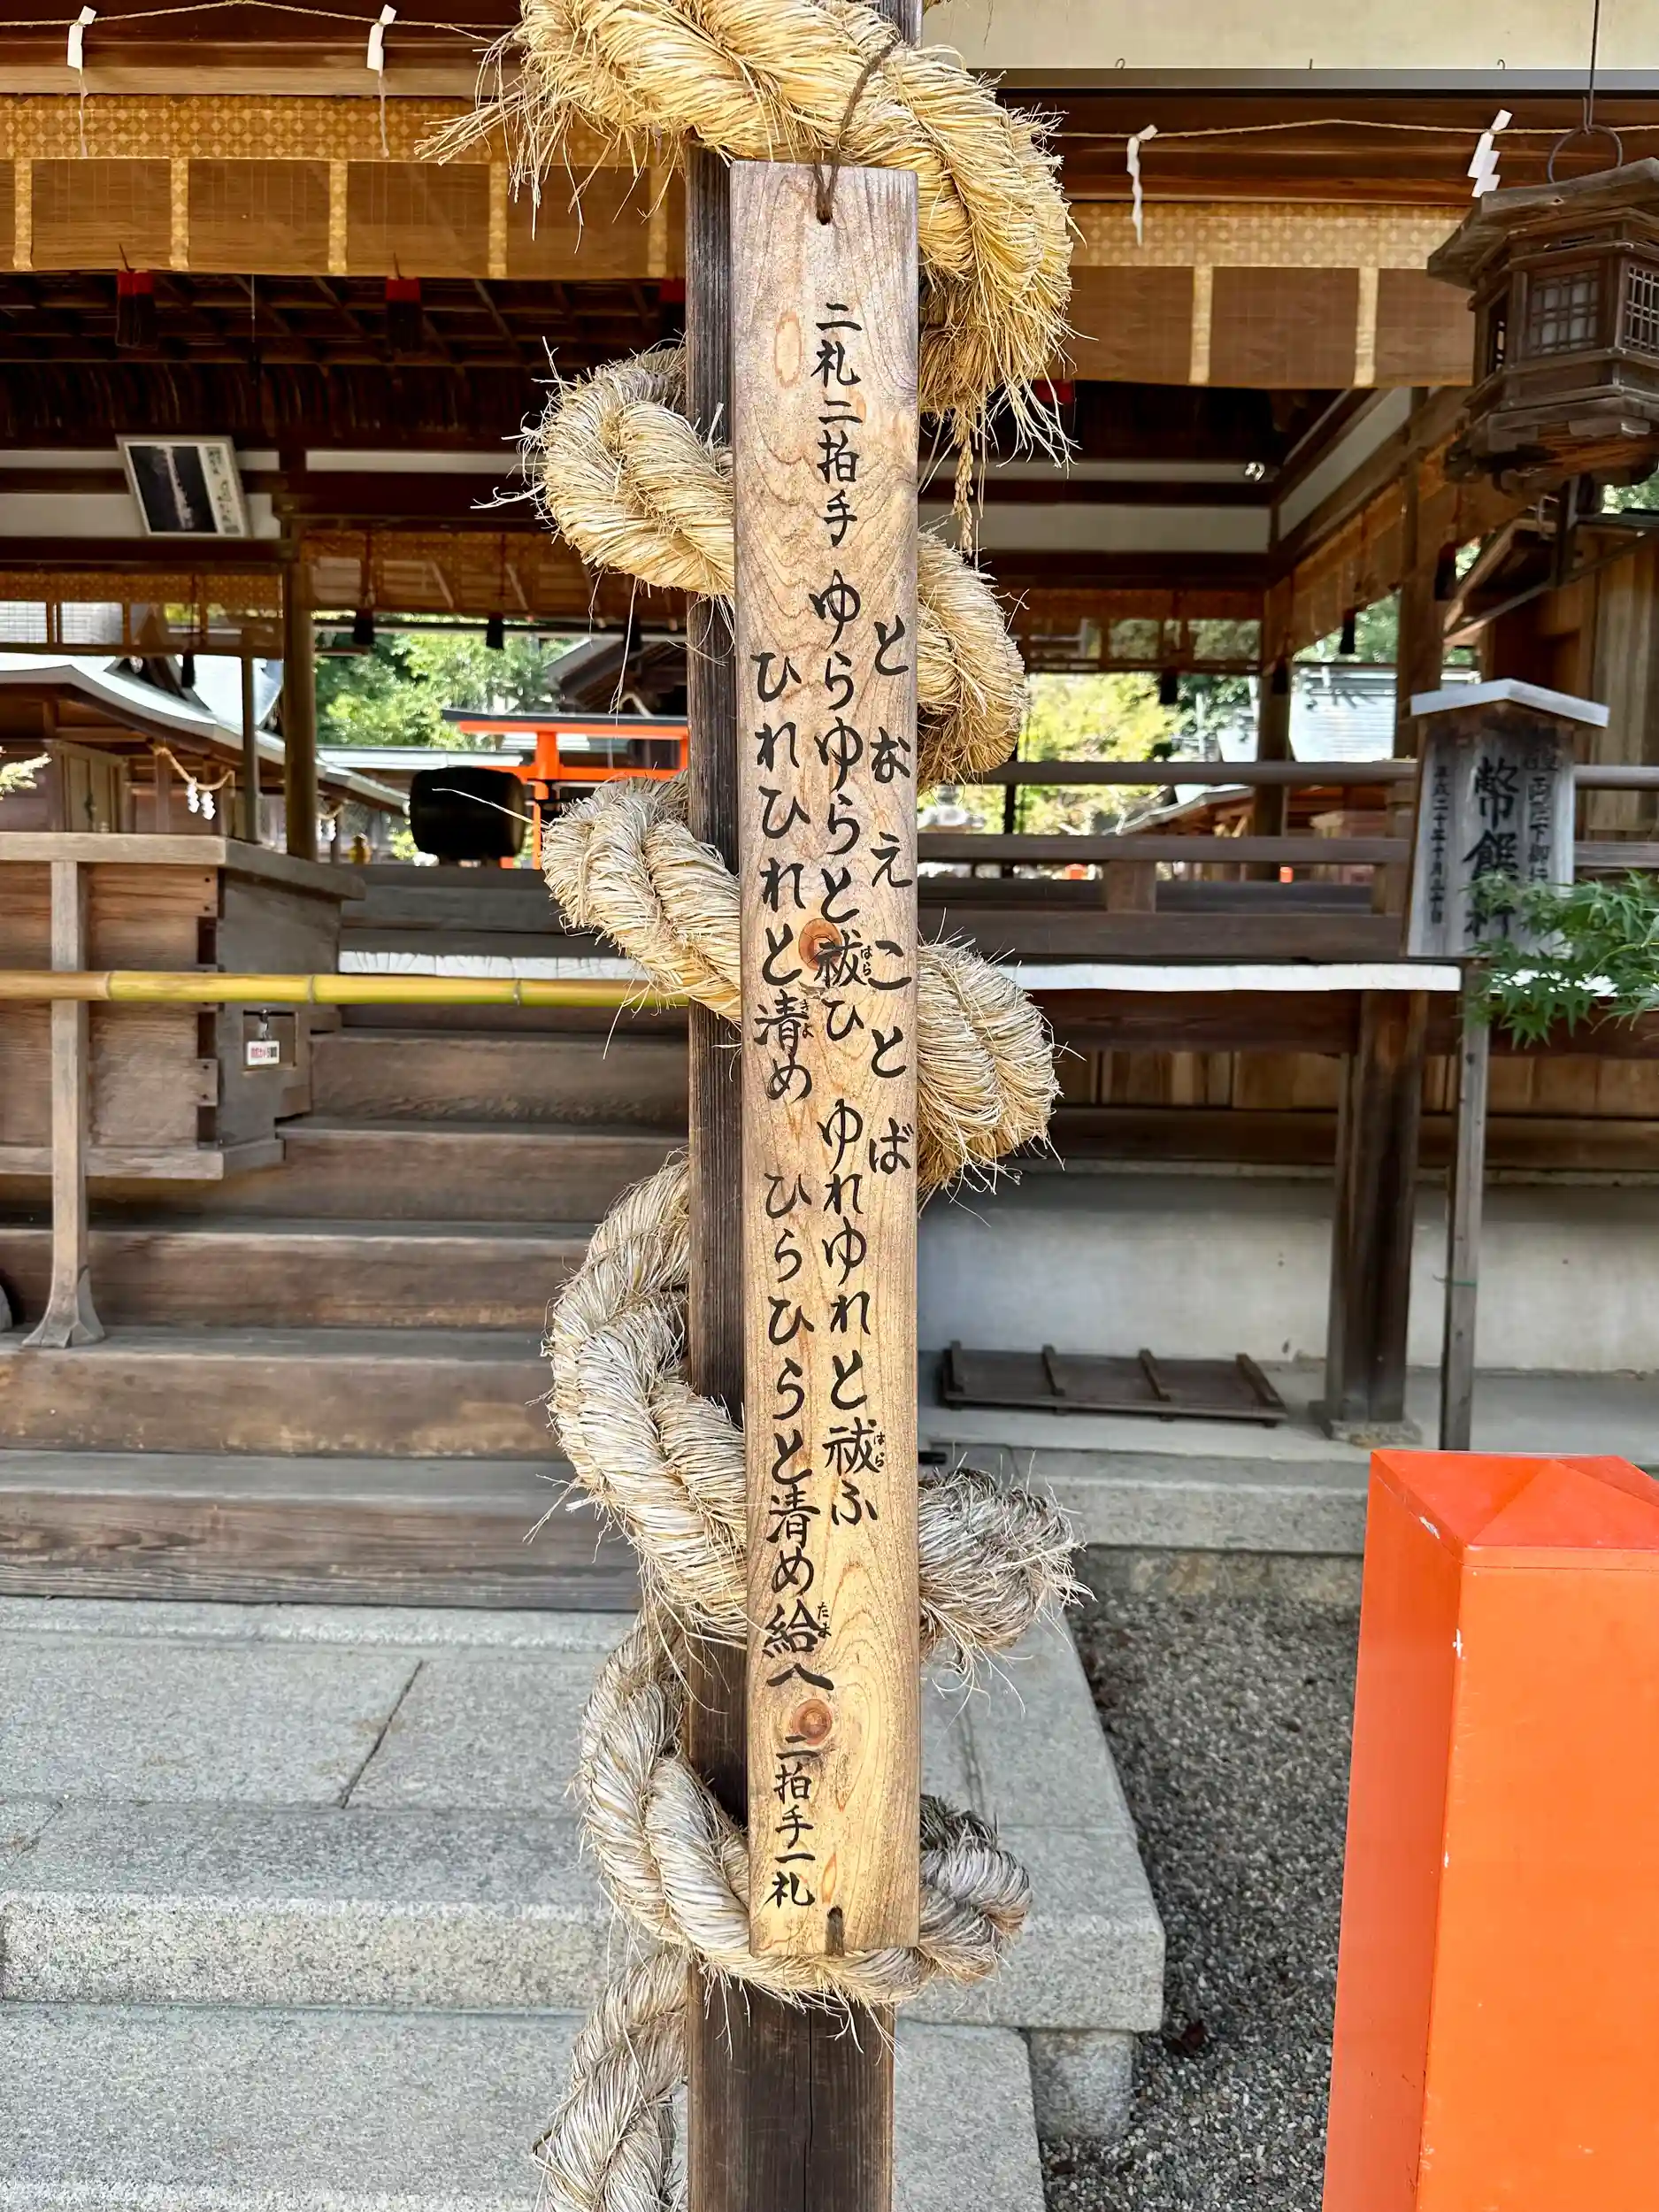 となえことば
二礼二拍手 ゆらゆらと祓ひ ゆれゆれと祓ふ
ひれひれと清め ひらひらと清め給へ 二拍手一礼
はら
きよ
はら
たま
幣饌料